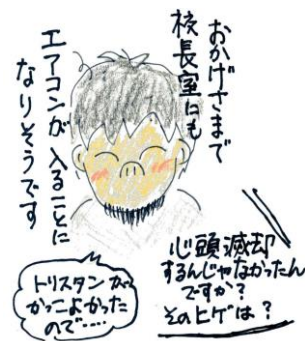 おかげさまで
校長室にも
エアコンが入ることに
なりそうです
心頭滅却
するんじゃなかったん
ですか?
そのヒゲは?
トリスタンが
かっこよかった
ので‥‥